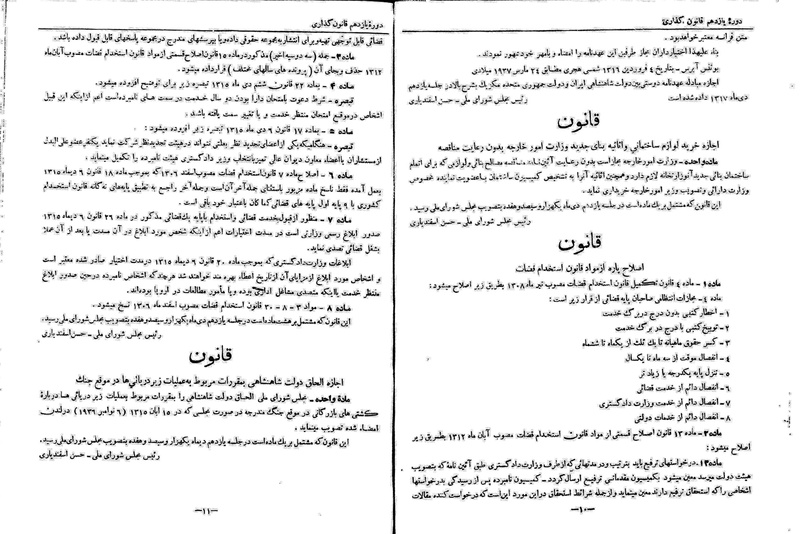 دورهٔ یازدهم قانون گذاری
متن فرانسه معتبر خواهد بود.
بناء علیهذا اختیارداران مجاز طرفین این عهدنامه را امضاء و بامهر خود ممهور نمودند.
بوئنس آیرس - بتاریخ ۴ فروردین ۱۳۱۶ شمسی هجری مطابق ۲۴ مارس ۱۹۳۷ میلادی
اجازه مبادله عهدنامه دوستی بین دولت شاهنشاهی ایران و دولت جمهوری متحده مکزیک بشرح بالا در جلسه یازدهم
دی‌ماه ۱۳۱۷ داده شده است رئیس مجلس شورای ملی - حسن اسفندیاری
قانون
اجازه خرید لوازم ساختمانی و اثاثیه بنای جدید وزارت امور خارجه بدون رعایت مناقصه
ماده واحده - وزارت امور خارجه مجاز است بدون رعایت آئین نامه مناقصه مصالح بنائی و لوازمی که برای اتمام
ساختمان بنای جدید آنوزارتخانه لازم دارد و همچنین اثاثیه آنرا به تشخیص کمیسیون ساختمان با عضویت نماینده مخصوص
وزارت دارائی و تصویب وزیر امور خارجه خریداری نماید.
این قانون که مشتمل بر یک ماده است در جلسه یازدهم دی ماه یکهزار و سیصد و هفده بتصویب مجلس شورای ملی رسید.
رئیس مجلس شورای ملی - حسن اسفندیاری
قانون
اصلاح پاره از مواد قانون استخدام قضات
ماده ۱ - ماده ۴ قانون تکمیل قانون استخدام قضات مصوب تیر ماه ۱۳۰۸ بطریق زیر اصلاح میشود:
ماده ۴ - مجازات انتظامی صاحبان پایه قضائی از قرار زیر است:
۱ - اخطار کتبی بدون درج در برگ خدمت
۲ - توبیخ کتبی با درج در برگ خدمت
۳ - کسر حقوق ماهیانه تا یک ثلث از یکماه تا ششماه
۴ - انفصال موقت از سه ماه تا یکسال
۵ - تنزل پایه یکدرجه یا زیاد تر
۶ - انفصال دائم از خدمت قضائی
۷ - انفصال دائم از خدمت وزارت دادگستری
۸ - انفصال دائم از خدمات دولتی
ماده ۲ - ماده ۱۳ قانون اصلاح قسمتی از مواد قانون استخدام قضات مصوب آبان ماه ۱۳۱۲ بطریق زیر
اصلاح میشود:
ماده ۱۳ - درخواستهای ترفیع باید بترتیب و در مدتهائی که از طرف وزارت دادگستری طبق آئین نامهٔ که بتصویب
هیئت دولت میرسد معین میشود بکمیسیون مقدماتی ترفیع ارسال گردد - کمیسیون نامبرده پس از رسیدگی بدرخواستها
اشخاصی را که استحقاق ترفیع دارند معین مینماید و از جمله شرائط استحقاق در این مورد این است که درخواست کننده مقالات
—۱۰—
دورهٔ یازدهم قانون گذاری
قضائی قابل توجهی تهیه و برای انتشار به مجموعه حقوقی داده و یا بپرسشهای مندرج در مجموعه پاسخهای قابل قبول داده باشد.
ماده ۳ - جمله (سه دوسیه اخیر) مذکور در ماده ۱۵ قانون اصلاح قسمتی از مواد قانون استخدام قضات مصوب آبان ماه
۱۳۱۲ حذف و بجای آن (پرونده های سالهای مختلف) قرار داده میشود.
ماده ۴ - بماده ۲۲ قانون ششم دی ماه ۱۳۱۵ تبصره زیر برای توضیح افزوده میشود.
تبصره - شرط دعوت بامتحان دارا بودن دو سال خدمت در سمت های نامبرده است اعم از اینکه این قبیل
اشخاص در موقع امتحان منتظر خدمت و یا تغییر سمت یافته باشند.
ماده ۵ - بماده ۱۷ قانون ۶ دی ماه ۱۳۱۵ تبصره زیر افزوده میشود:
تبصره - هنگامیکه یکی از اعضای تجدید نظر بعللی نتواند در هیئت تجدید نظر شرکت نماید یکنفر عضو علی‌البدل
از مستشاران یا اعضاء معاون دیوان عالی تمیز بانتخاب وزیر دادگستری هیئت نامبرده را تکمیل مینماید.
ماده ۶ - اصلاح ماده ۷ قانون استخدام قضات مصوب اسفند ۱۳۰۶ که بموجب ماده ۱۸ قانون ۶ دیماه ۱۳۱۵
بعمل آمده فقط ناسخ ماده مزبور باستثنای جملهٔ آخر آن است و جملهٔ آخر راجع به تطبیق پایه‌های نه گانه قانون استخدام
کشوری با ۹ پایه اول پایه های قضائی کماکان باعتبار خود باقی است.
ماده ۷ - منظور از قبول بخدمت قضائی و استخدام با پایه یک قضائی مذکور در ماده ۲۹ قانون ۶ دیماه ۱۳۱۵
صدور ابلاغ رسمی وزارتی است در مدت اختیارات اعم از اینکه شخص مورد ابلاغ در آن مدت یا بعد از آن عملا
بشغل قضائی تصدی نماید.
ابلاغات وزارت دادگستری که بموجب ماده ۳۰ قانون ۶ دیماه ۱۳۱۵ در مدت اختیار صادر شده معتبر است
و اشخاص مورد ابلاغ از مزایای آن از تاریخ اعطاء بهره مند خواهند شد هر چند که اشخاص نامبرده در حین صدور ابلاغ
منتظر خدمت یا اینکه متصدی مشاغل اداری بوده و یا مأمور مطالعات در اروپا بوده‌اند.
ماده ۸ - مواد ۳ - ۸ - ۳۰ قانون استخدام قضات مصوب اسفند ماه ۱۳۰۶ نسخ میشود.
این قانون که مشتمل بر هشت ماده است در جلسه یازدهم دی ماه یکهزار و سیصد و هفده بتصویب مجلس شورای ملی رسید.
رئیس مجلس شورای ملی - حسن اسفندیاری
قانون
اجازه الحاق دولت شاهنشاهی بمقررات مربوط به عملیات زیردریائی‌ها در موقع جنگ
ماده واحده - مجلس شورای ملی الحاق دولت شاهنشاهی را بمقررات مربوط بعملیات زیر دریائی ها دربارهٔ
کشتی های بازرگانی در موقع جنگ مندرجه در صورت مجلسی که در ۱۵ آبان ۱۳۱۵ (۶ نوامبر ۱۹۳۶) در لندن
امضاء شده تصویب مینماید.
این قانون که مشتمل بر یک ماده است در جلسه یازدهم دیماه یکهزار و سیصد و هفده بتصویب مجلس شورای ملی رسید.
رئیس مجلس شورای ملی - حسن اسفندیاری
—۱۱—